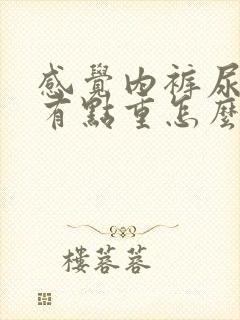 感覺內褲尿
有點重怎麼
樓蓉蓉